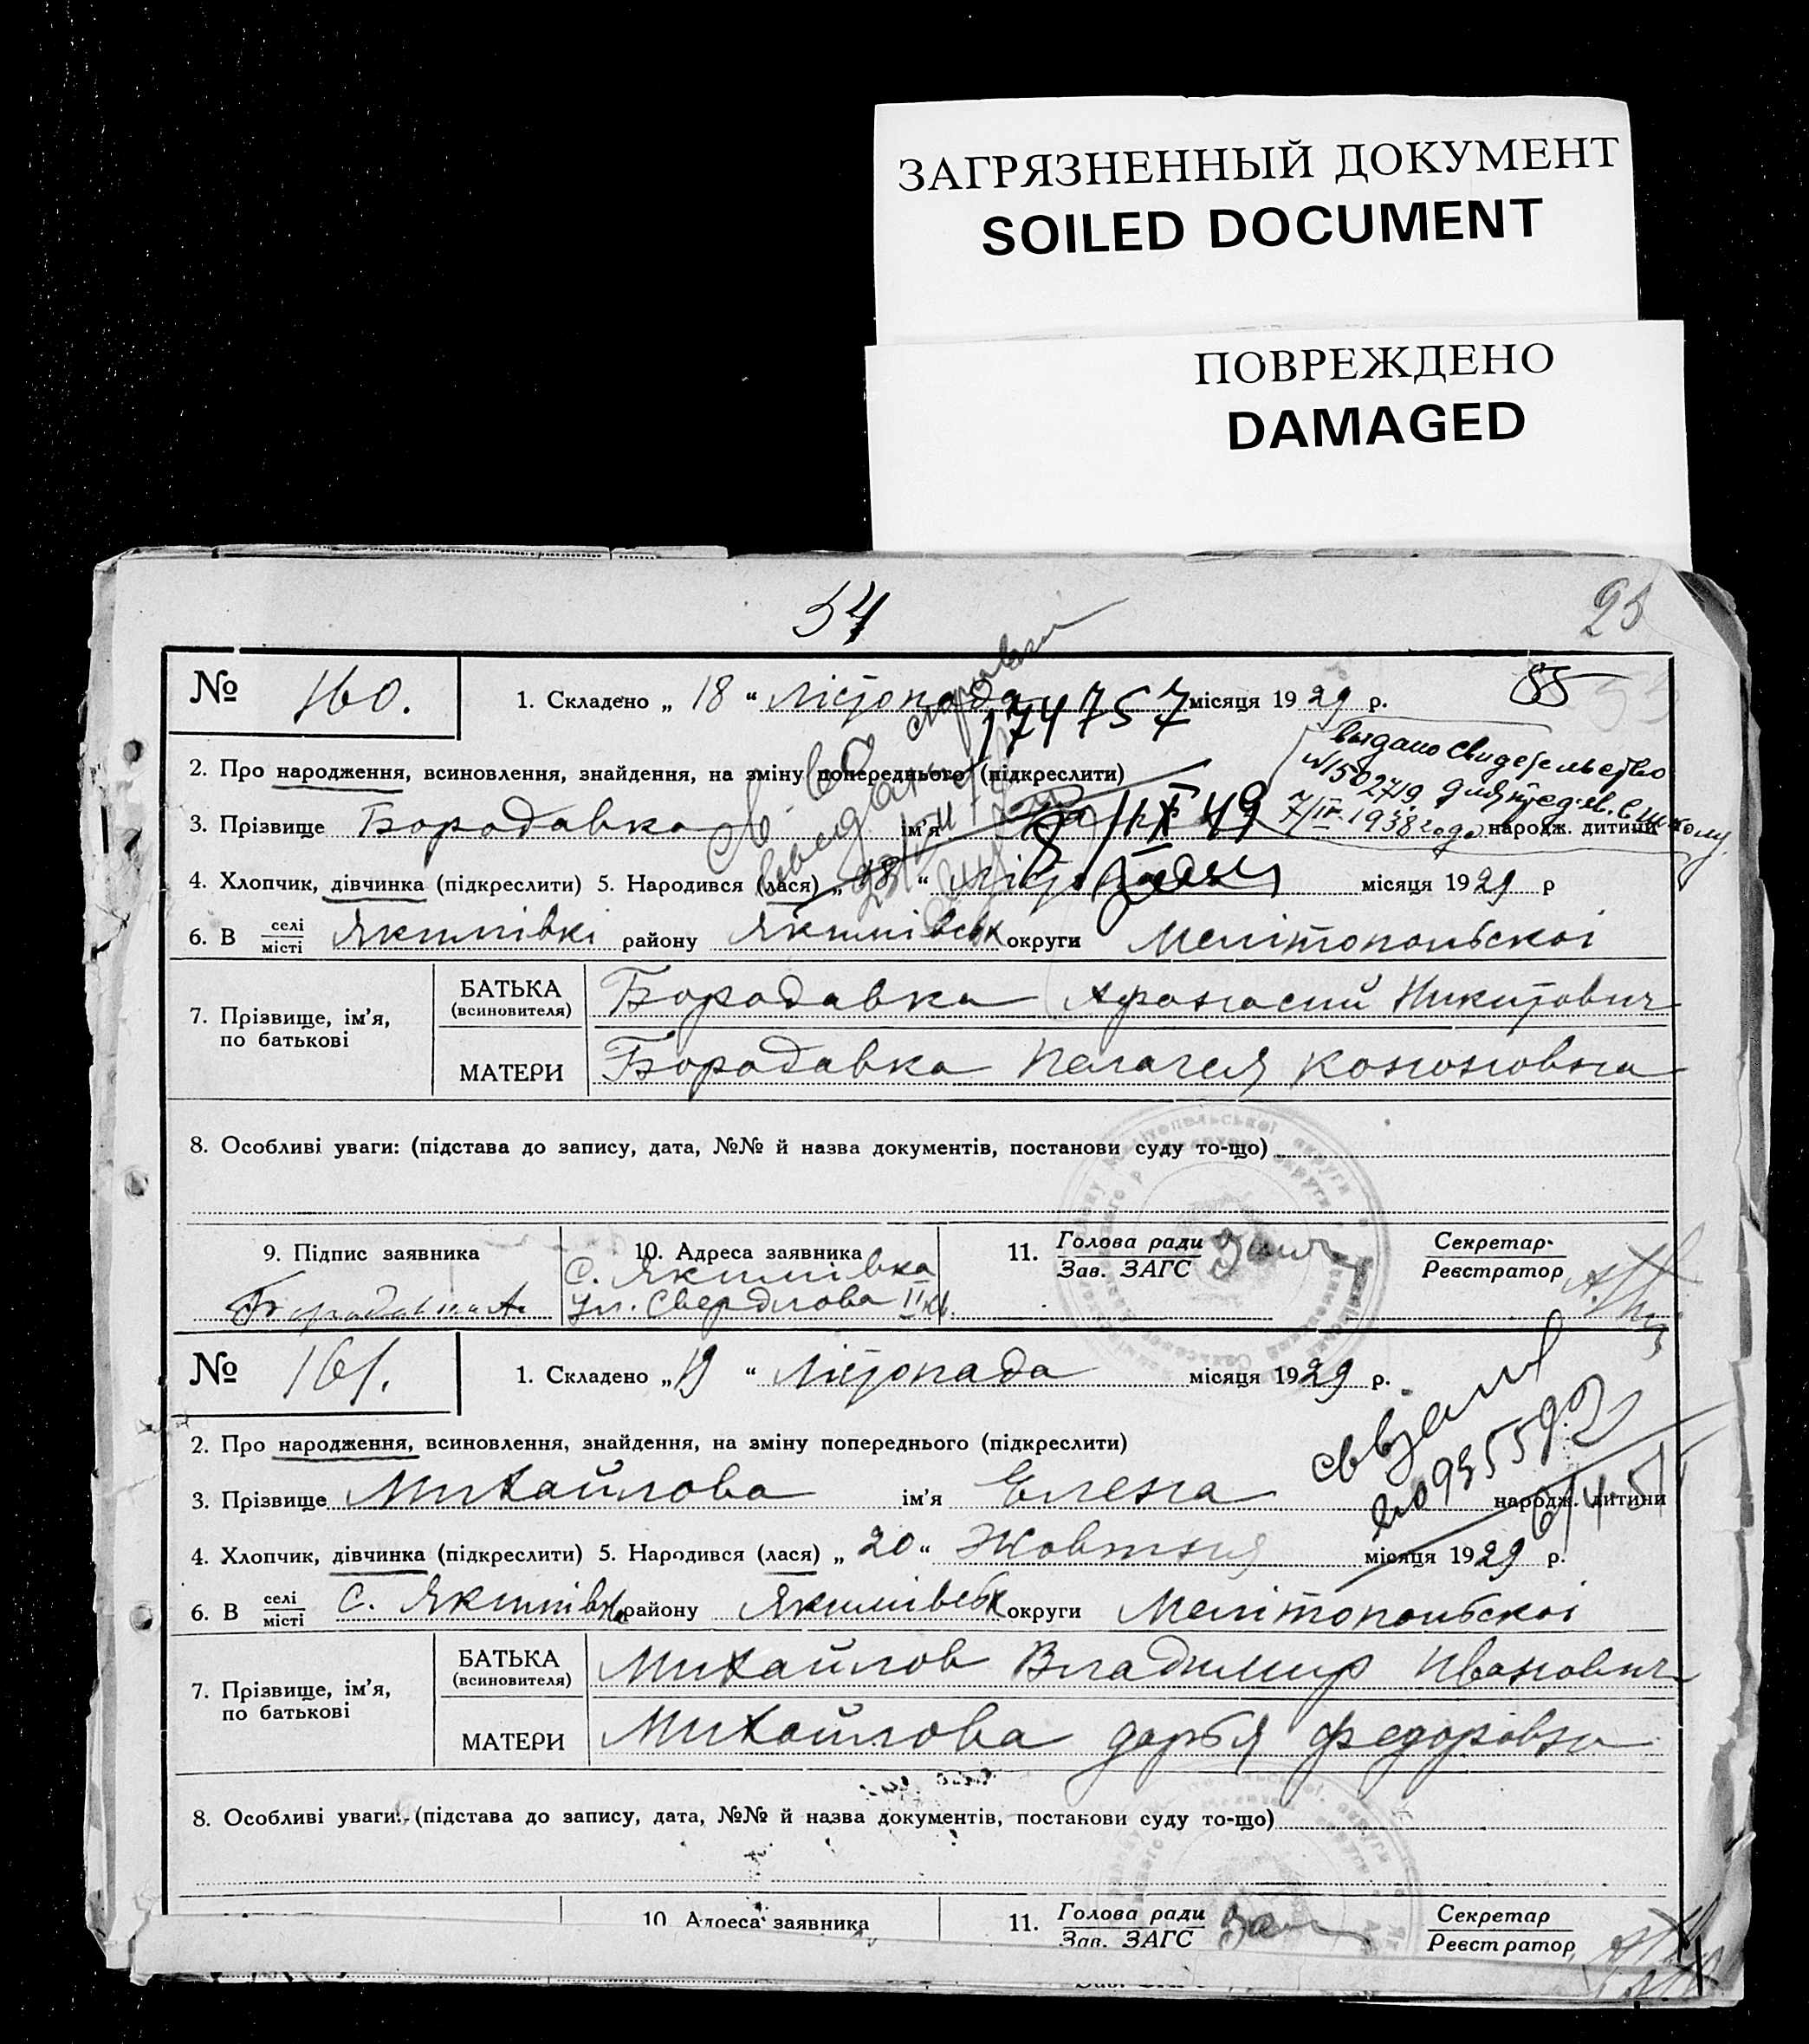 ЗАГРЯЗНЕННЫЙ ДОКУМЕНТ
SOILED DOCUMENT
ПОВРЕЖДЕНО
DAMAGED
54
95
№ 160. 1. Складено „ 18 “ Лістопада місяця 1929 р. 55
174757
2. Про народження, всиновлення, знайдення, на зміну попереднього (підкреслити)
выдано свидетельство
N1502719 7/IV 1938 года школу
3. Прізвище Бородавка ім'я народж. дитини
4. Хлопчик, дівчинка (підкреслити) 5. Народився (лася) „ 18 “ місяця 1929 р
6. В селі/місті Якимівкі району Якимівськ округи Мелітопольскоі
7. Прізвище, ім'я, по батькові
БАТЬКА (всиновителя) Бородавка Афонасий Никитович
МАТЕРИ Бородавка Пелагея Кононовна
8. Особливі уваги: (підстава до запису, дата, №№ й назва документів, постанови суду то-що)
9. Підпис заявника 10. Адреса заявника 11. Голова ради/Зав. ЗАГС Секретар-/Реєстратор
с. Якимівка
ул. Свердлова II кв.
№ 161. 1. Складено „ 19 “ Лістопада місяця 1929 р.
2. Про народження, всиновлення, знайдення, на зміну попереднього (підкреслити)
3. Прізвище Михайлова ім'я Елена народж. дитини
4. Хлопчик, дівчинка (підкреслити) 5. Народився (лася) „ 20 “ Жовтня місяця 1929 р.
6. В селі/місті с. Якимівка району Якимівськ округи Мелітопольскоі
7. Прізвище, ім'я, по батькові
БАТЬКА (всиновителя) Михайлов Владимир Иванович
МАТЕРИ Михайлова Дарья Федоровна
8. Особливі уваги: (підстава до запису, дата, №№ й назва документів, постанови суду то-що)
10. Адреса заявника 11. Голова ради/Зав. ЗАГС Секретар/Реєстратор